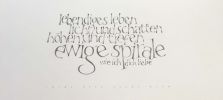 lebendiges leben
licht und schatten
höhen und tiefen
ewige spirale
wie ich dich liebe